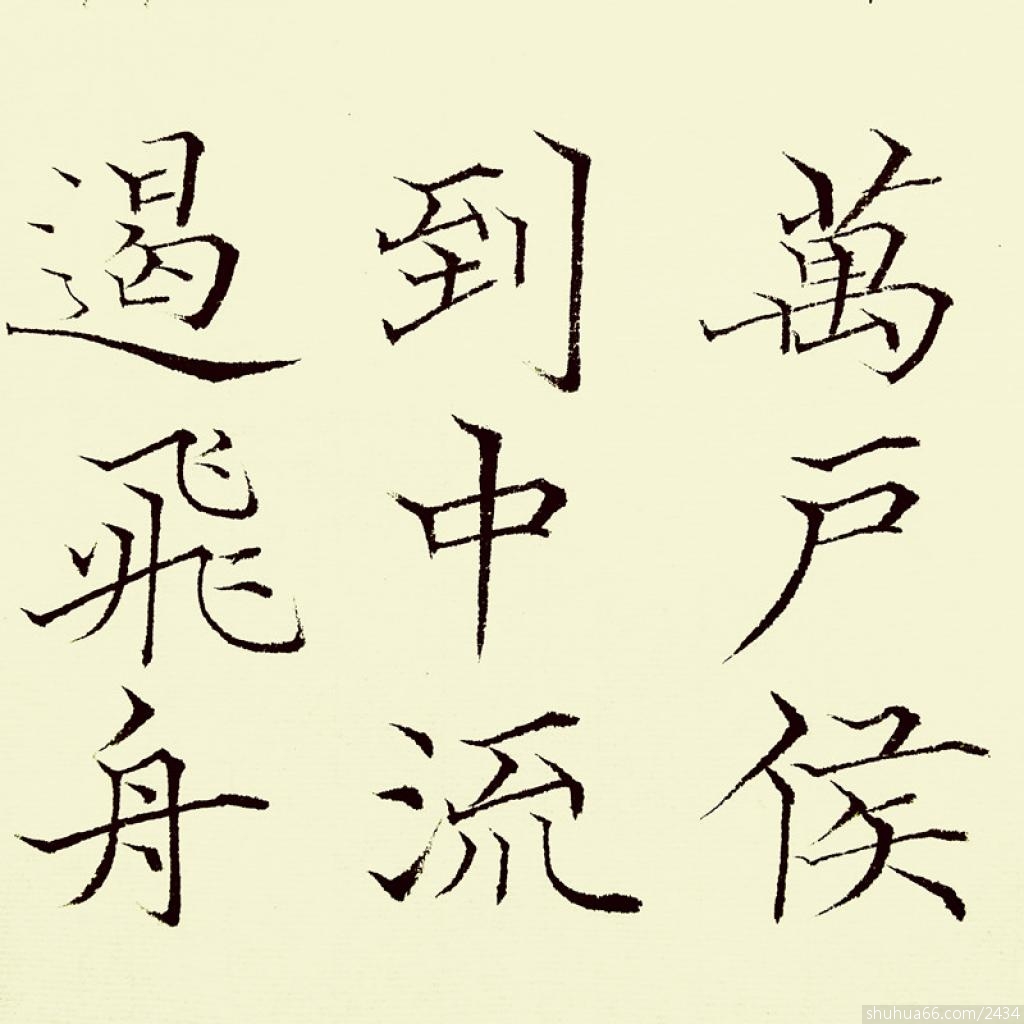 萬户侯
到中流
遏飛舟
shuhua66.com/2434